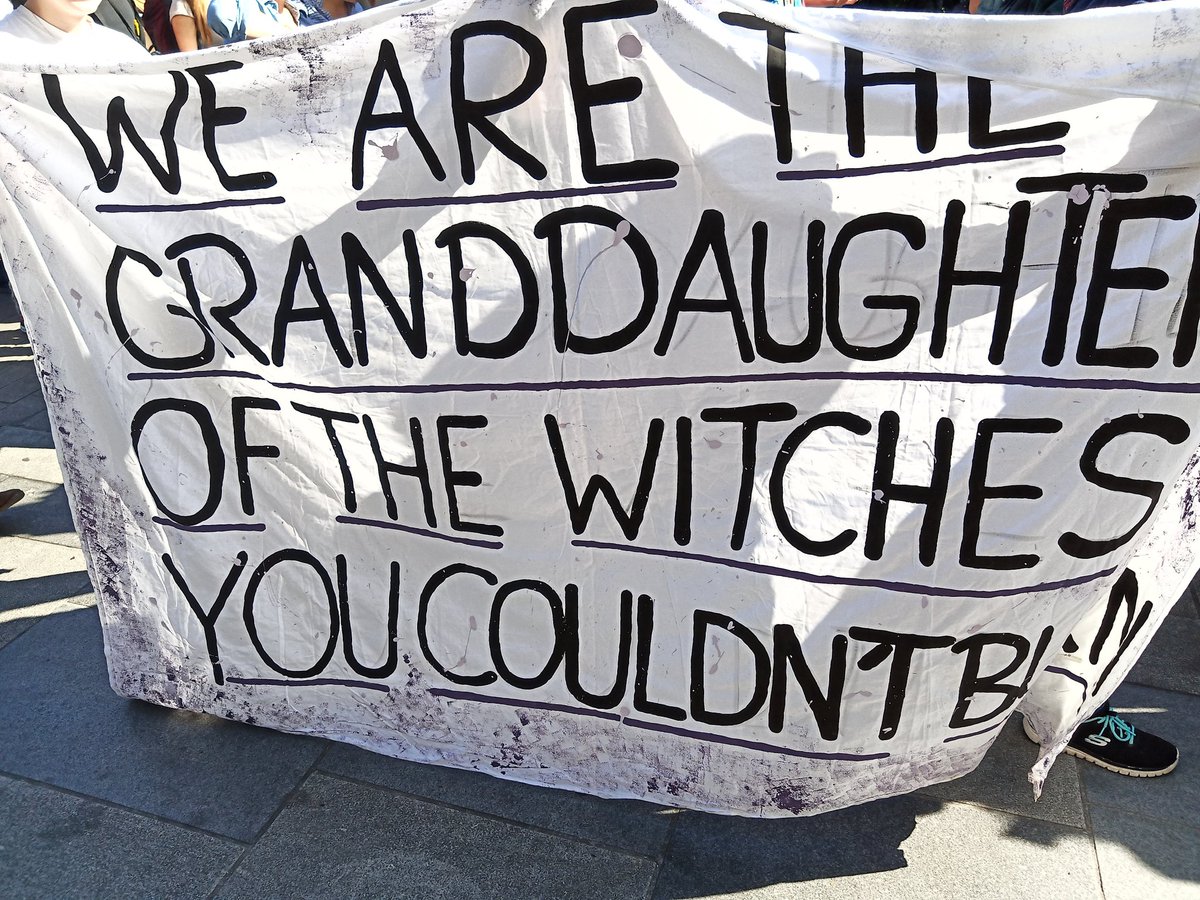 WE ARE THE
GRANDDAUGHTER
OF THE WITCHES
YOU COULDN'T